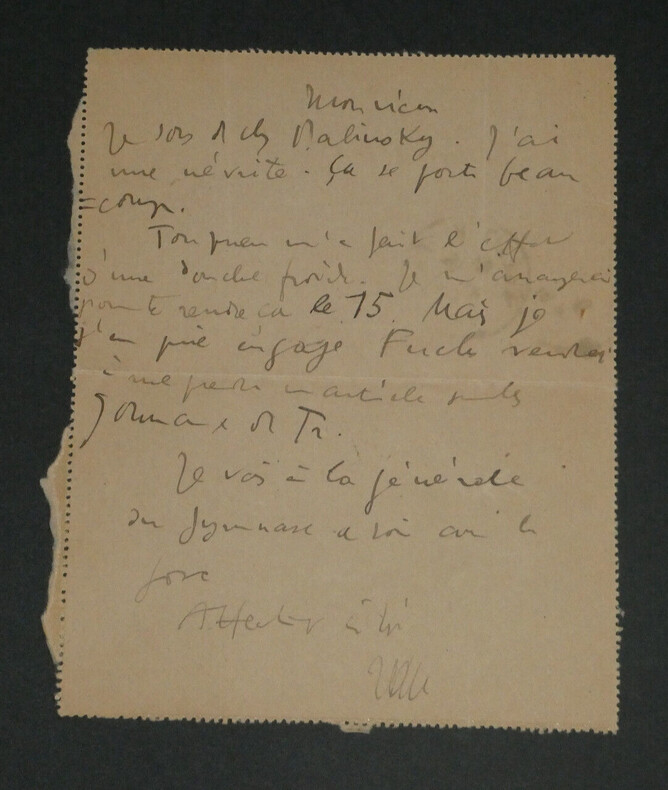 Mon vieux
Je sors de chez Malinsky. J'ai
une névrite. Ça se porte beau
=coup.
Ton pneu m'a fait l'effet
d'une douche froide. Je m'arrangerai
pour te rendre ça le 15. Mais je
t'en prie engage
à me un article sur les
de Tr.
Je vais à la générale
du Gymnase ce soir avec le

Affection à toi